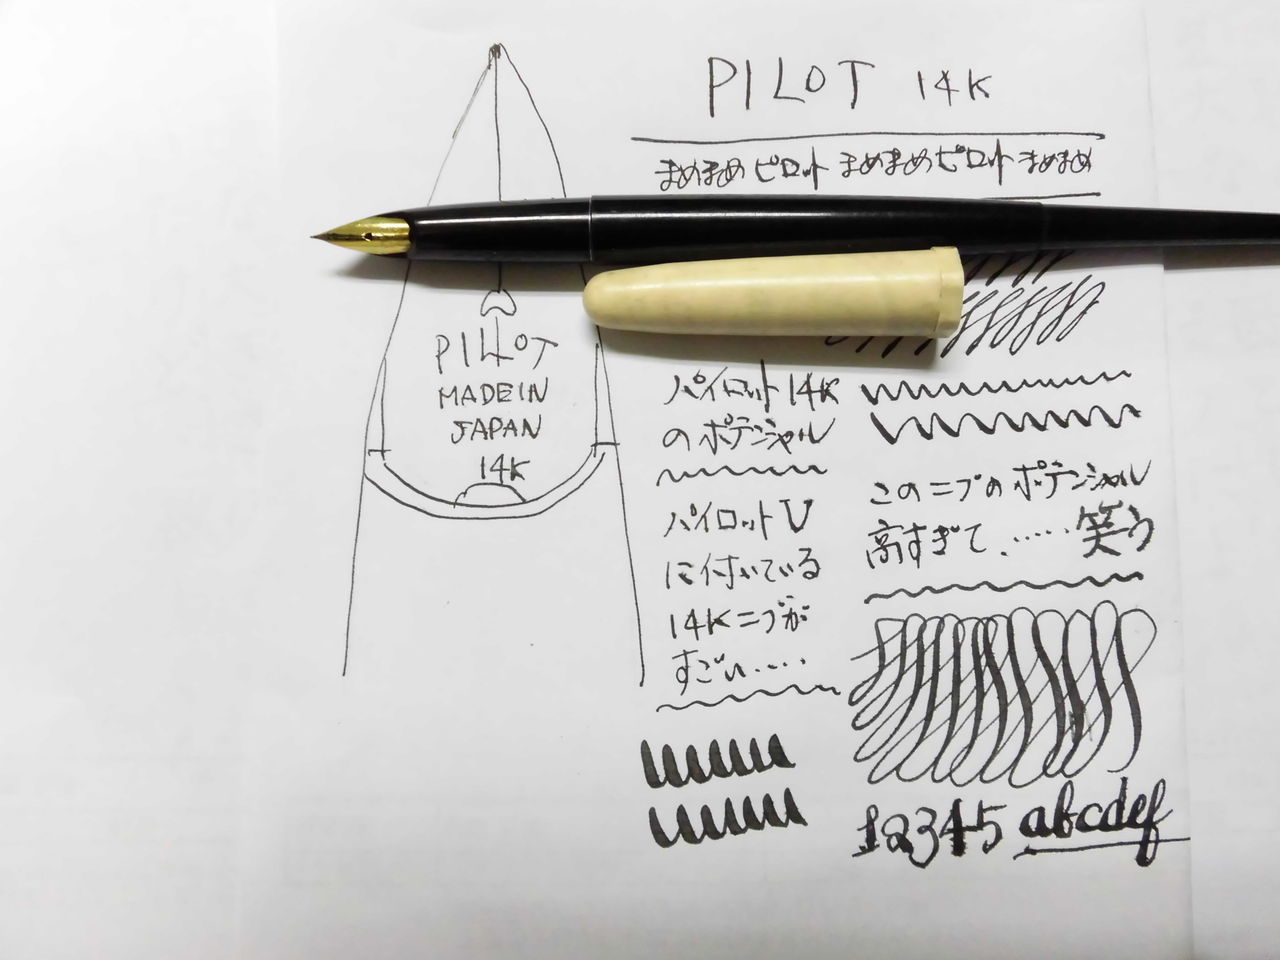 PILOT 14K
まめまめ ピロット まめまめ ピロット まめまめ
PILOT
MADE IN
JAPAN
14K
パイロット 14K
のポテンシャル
パイロットV
に付いている
14Kニブが
すごい……
このニブのポテンシャル
高すぎて……笑う
12345 abcdef